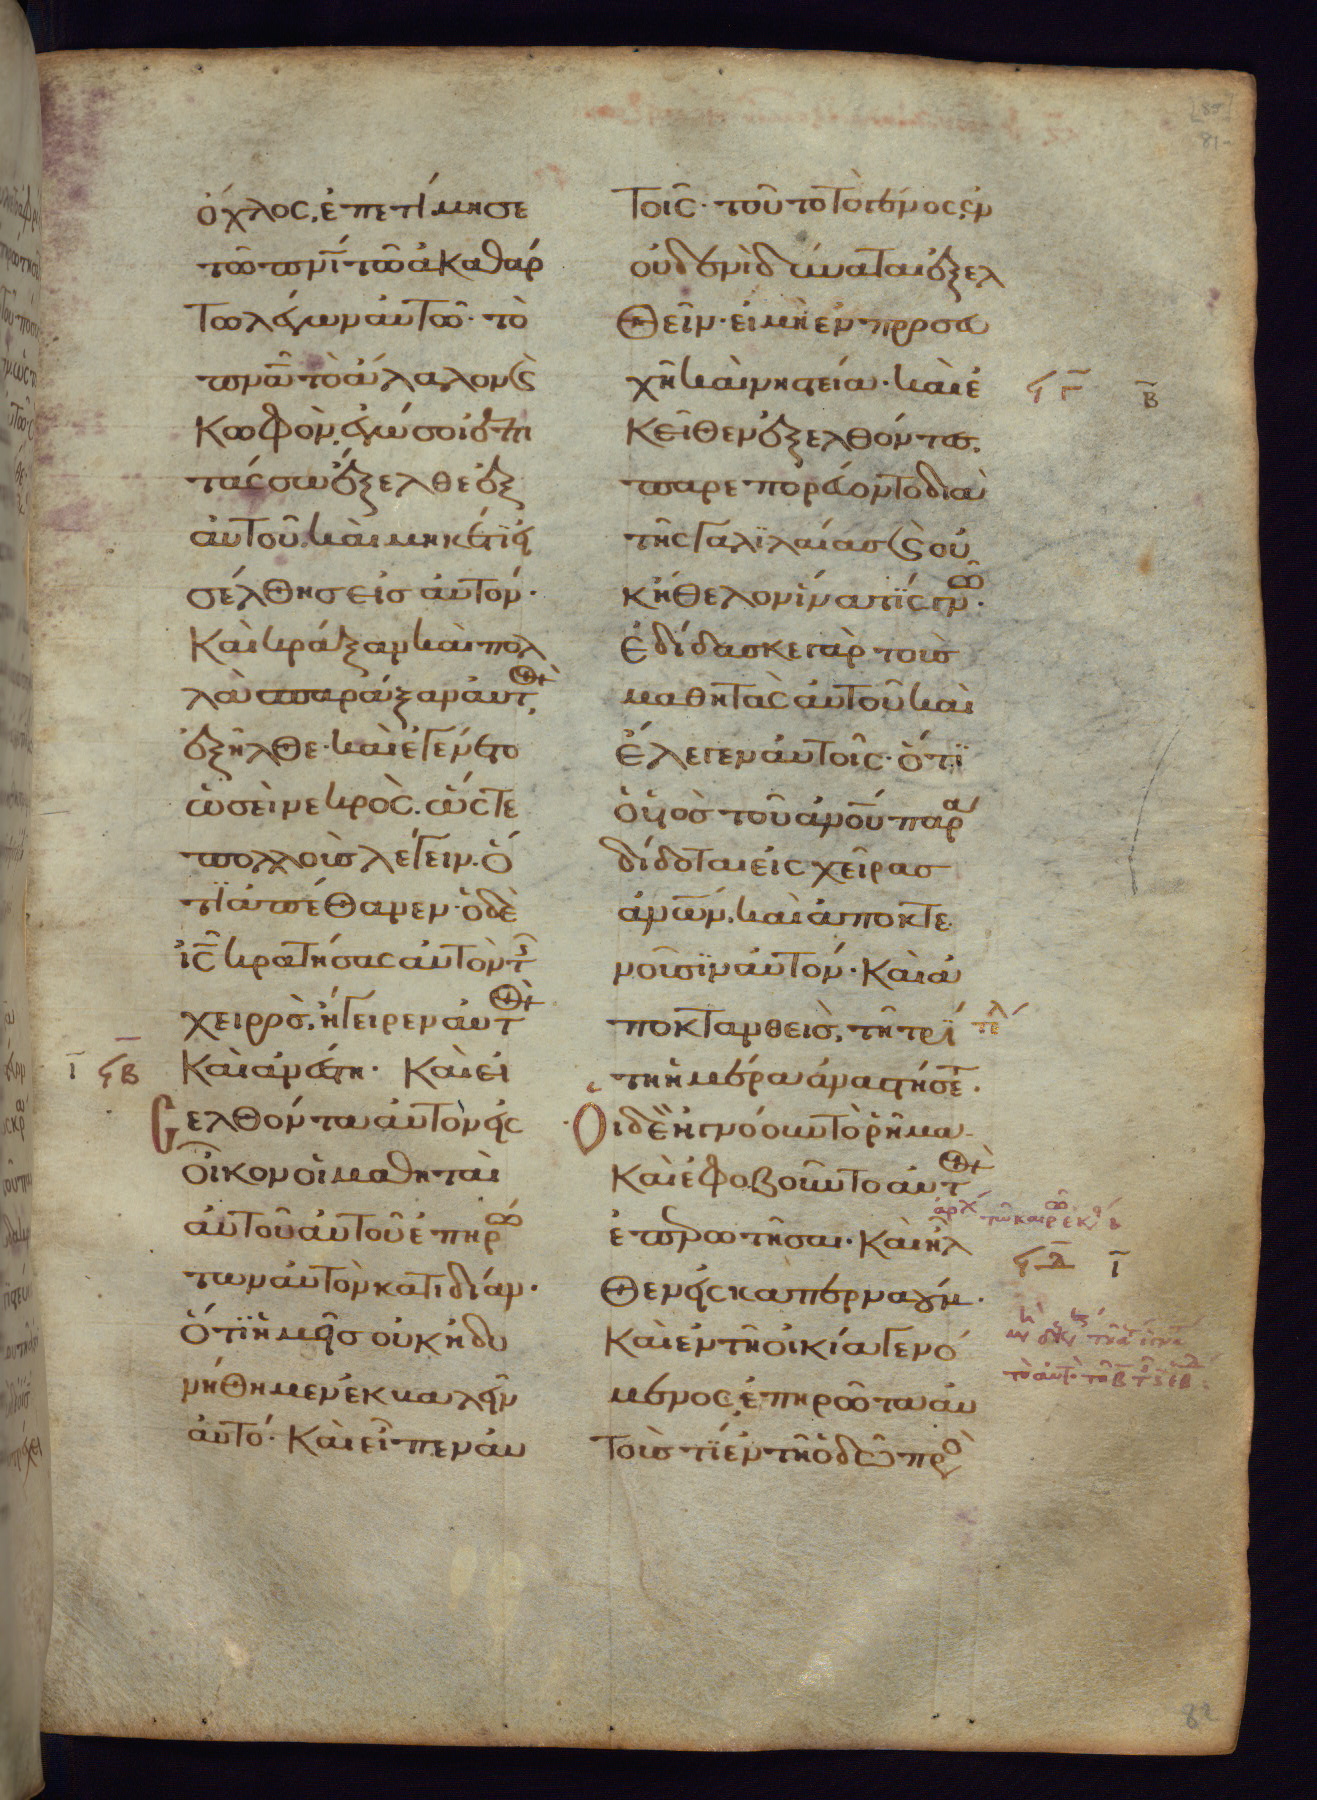 ὄχλος, ἐπετίμησε
τῶ πνι τῶ ἀκαθάρ
τω λέγων αὐτῶ· τὸ
πνᾶ τὸ ἄλαλον ϗ
κωφὸν, ἐγώ σοι ἐπι
τάσσω ἔξελθε ἐξ
αὐτοῦ, καὶ μηκέτι εἰ
σέλθης εἰς αὐτόν·
Καὶ κράξαν καὶ πολ
λὰ σπαράξαν αὐτὸ,
ἐξῆλθε· καὶ ἐγένετο
ὡσεὶ νεκρὸς. ὥστε
πολλοὺς λέγειν· ὅ
τι ἀπέθανεν· ὁ δὲ
ις κρατήσας αὐτὸν τῆς
χειρὸς, ἤγειρεν αὐτὸ
Ϛβ ι
Καὶ ἀνέστη· Καὶ εἰ
σελθόντα αὐτὸν εἰς
οἶκον οἱ μαθηταὶ
αὐτοῦ αὐτοῦ ἐπηρώ
των αὐτὸν κατιδίαν·
ὅτι ἡμεῖς οὐκ ἠδυ
νήθημεν ἐκβαλεῖν
αὐτό· Καὶ εἶπεν αὐ
τοῖς· τοῦτο τὸ γένος, ἐν
οὐδενὶ δύναται ἐξελ
θεῖν· εἰ μὴ ἐν προσευ
χῆ καὶ νηστεία· καὶ ἐ
Ϛγ β
κεῖθεν ἐξελθόντες,
παρεπορεύοντο διὰ
τῆς γαλιλαίας ϗ οὐ
κ ἤθελον ἵνα τις γνῶ·
ἐδίδασκε γὰρ τοὺς
μαθητὰς αὐτοῦ καὶ
ἔλεγεν αὐτοῖς· ὅτι
ὁ υἱὸς τοῦ ανου παρα
δίδοται εἰς χεῖρας
ανων, καὶ ἀποκτε
νοῦσιν αὐτόν· Καὶ ἀ
ποκτανθεὶς, τῆ τρί
τη ἡμέρα ἀναστήσετ·
Οἱ δὲ ἠγνόουν τὸ ῥῆμα
Καὶ ἐφοβοῦντο αὐτὸ
ἐπρωτῆσαι· Καὶ ἦλ
Ϛδ ι
θεν εἰς καπερναούμ·
Καὶ ἐν τῆ οἰκία γενό
μενος, ἐπηρώτα αὐ
τοὺς τί ἐν τῆ ὁδῶ πρὸ
82